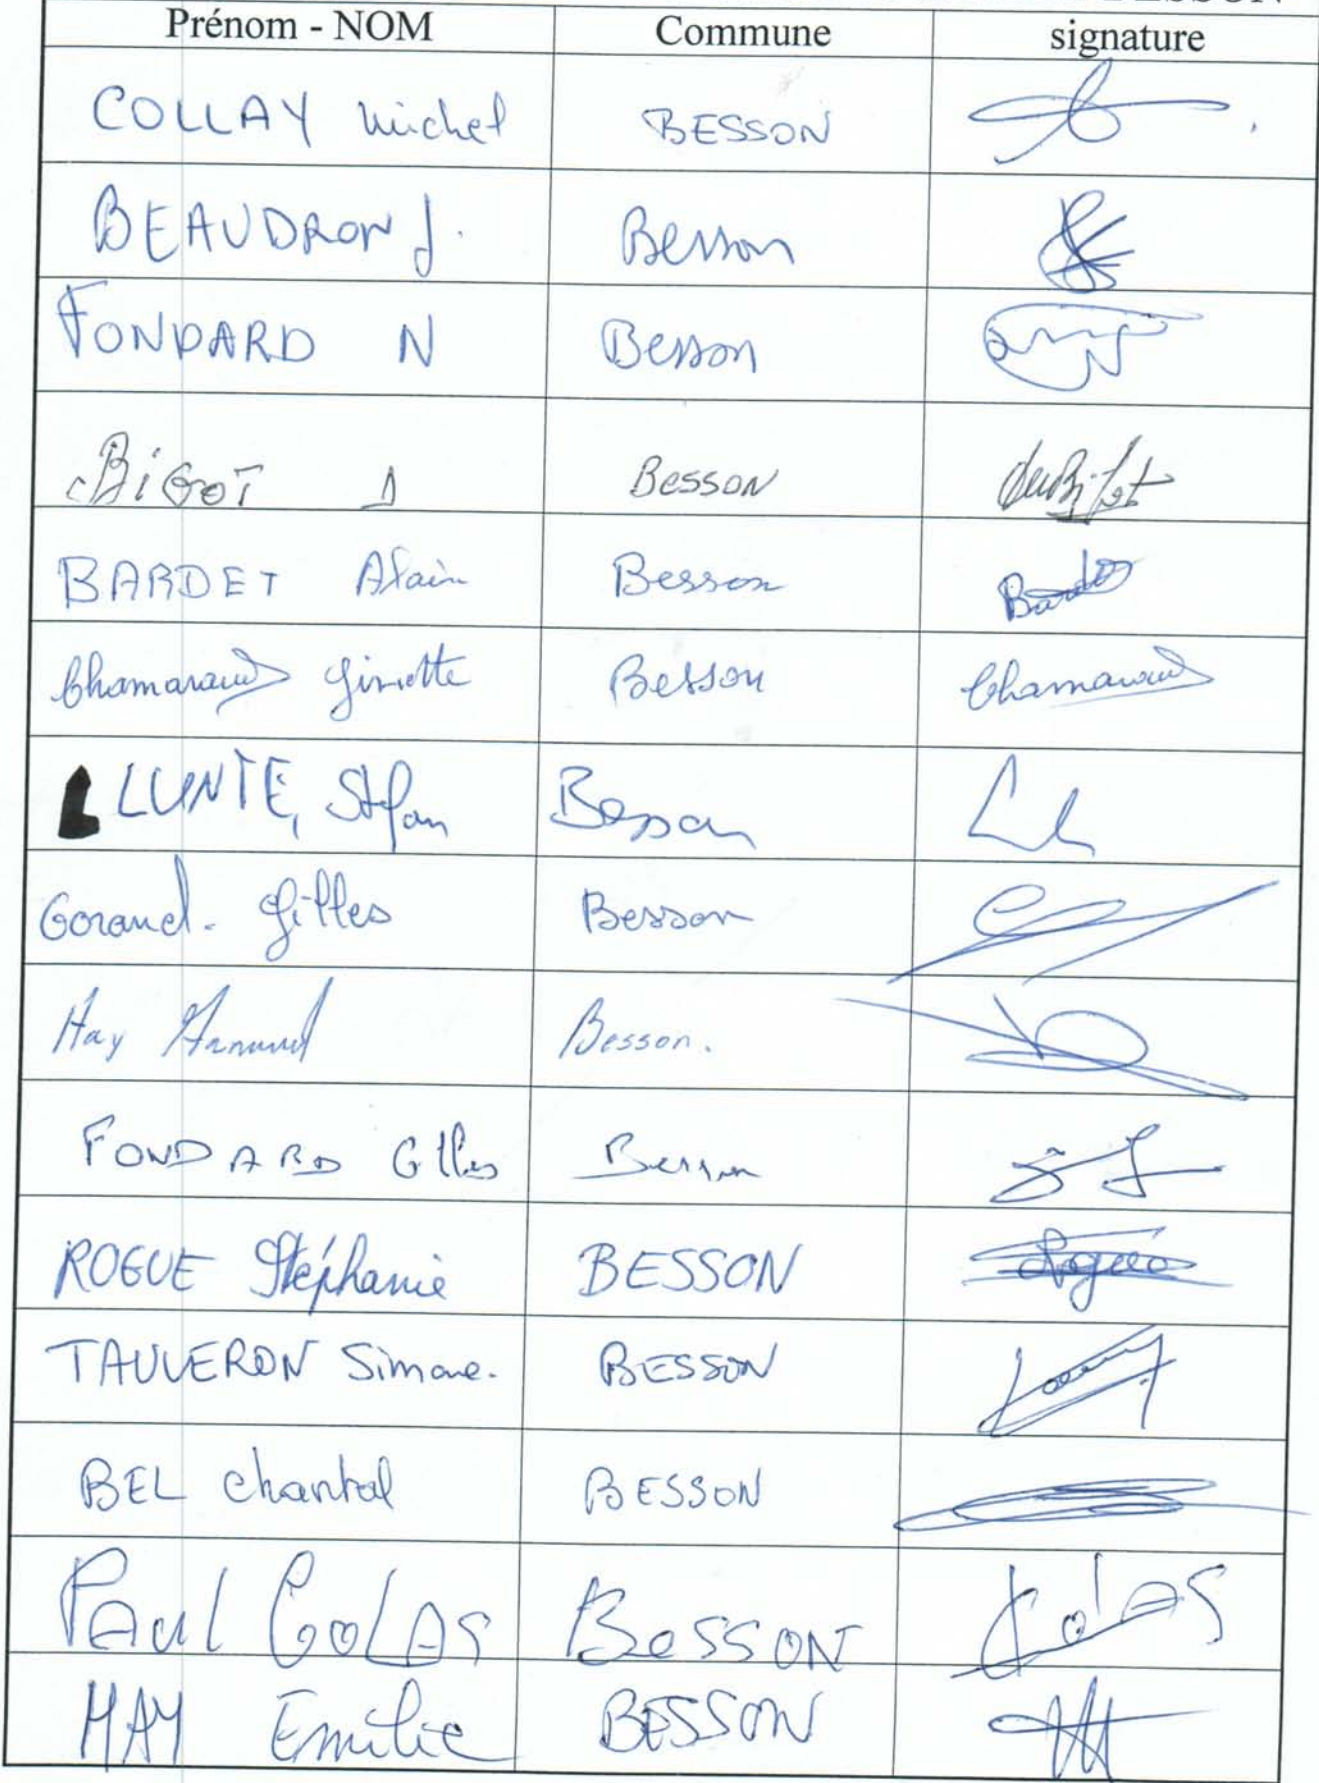 BESSON
Prénom - NOM Commune signature
COLLAY Michel BESSON
BEAUDRON J. Besson
FONDARD N Besson
BIGOT J Besson
BARDET Alain Besson Bardet
Chamaraud Ginette Besson Chamaraud
LUNTE, Stefan Besson
Gorand. Gilles Besson
Hay Armand Besson.
FONDARD Gilles Besson
ROGUE Stéphanie BESSON Rogue
TAUVERON Simone. BESSON
BEL Chantal BESSON
PAUL COLAS BESSON COLAS
HAY Emilie BESSON